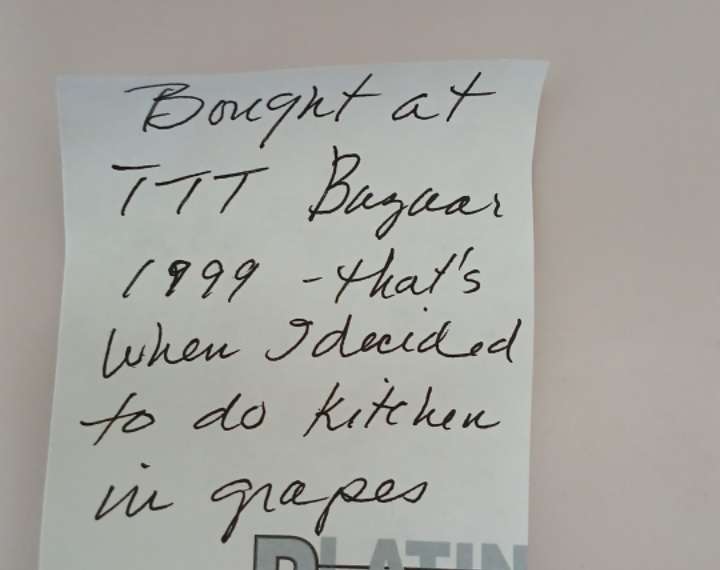 Bought at
TTT Bazaar
1999 - that's
when I decided
to do kitchen
in grapes
PLATIN